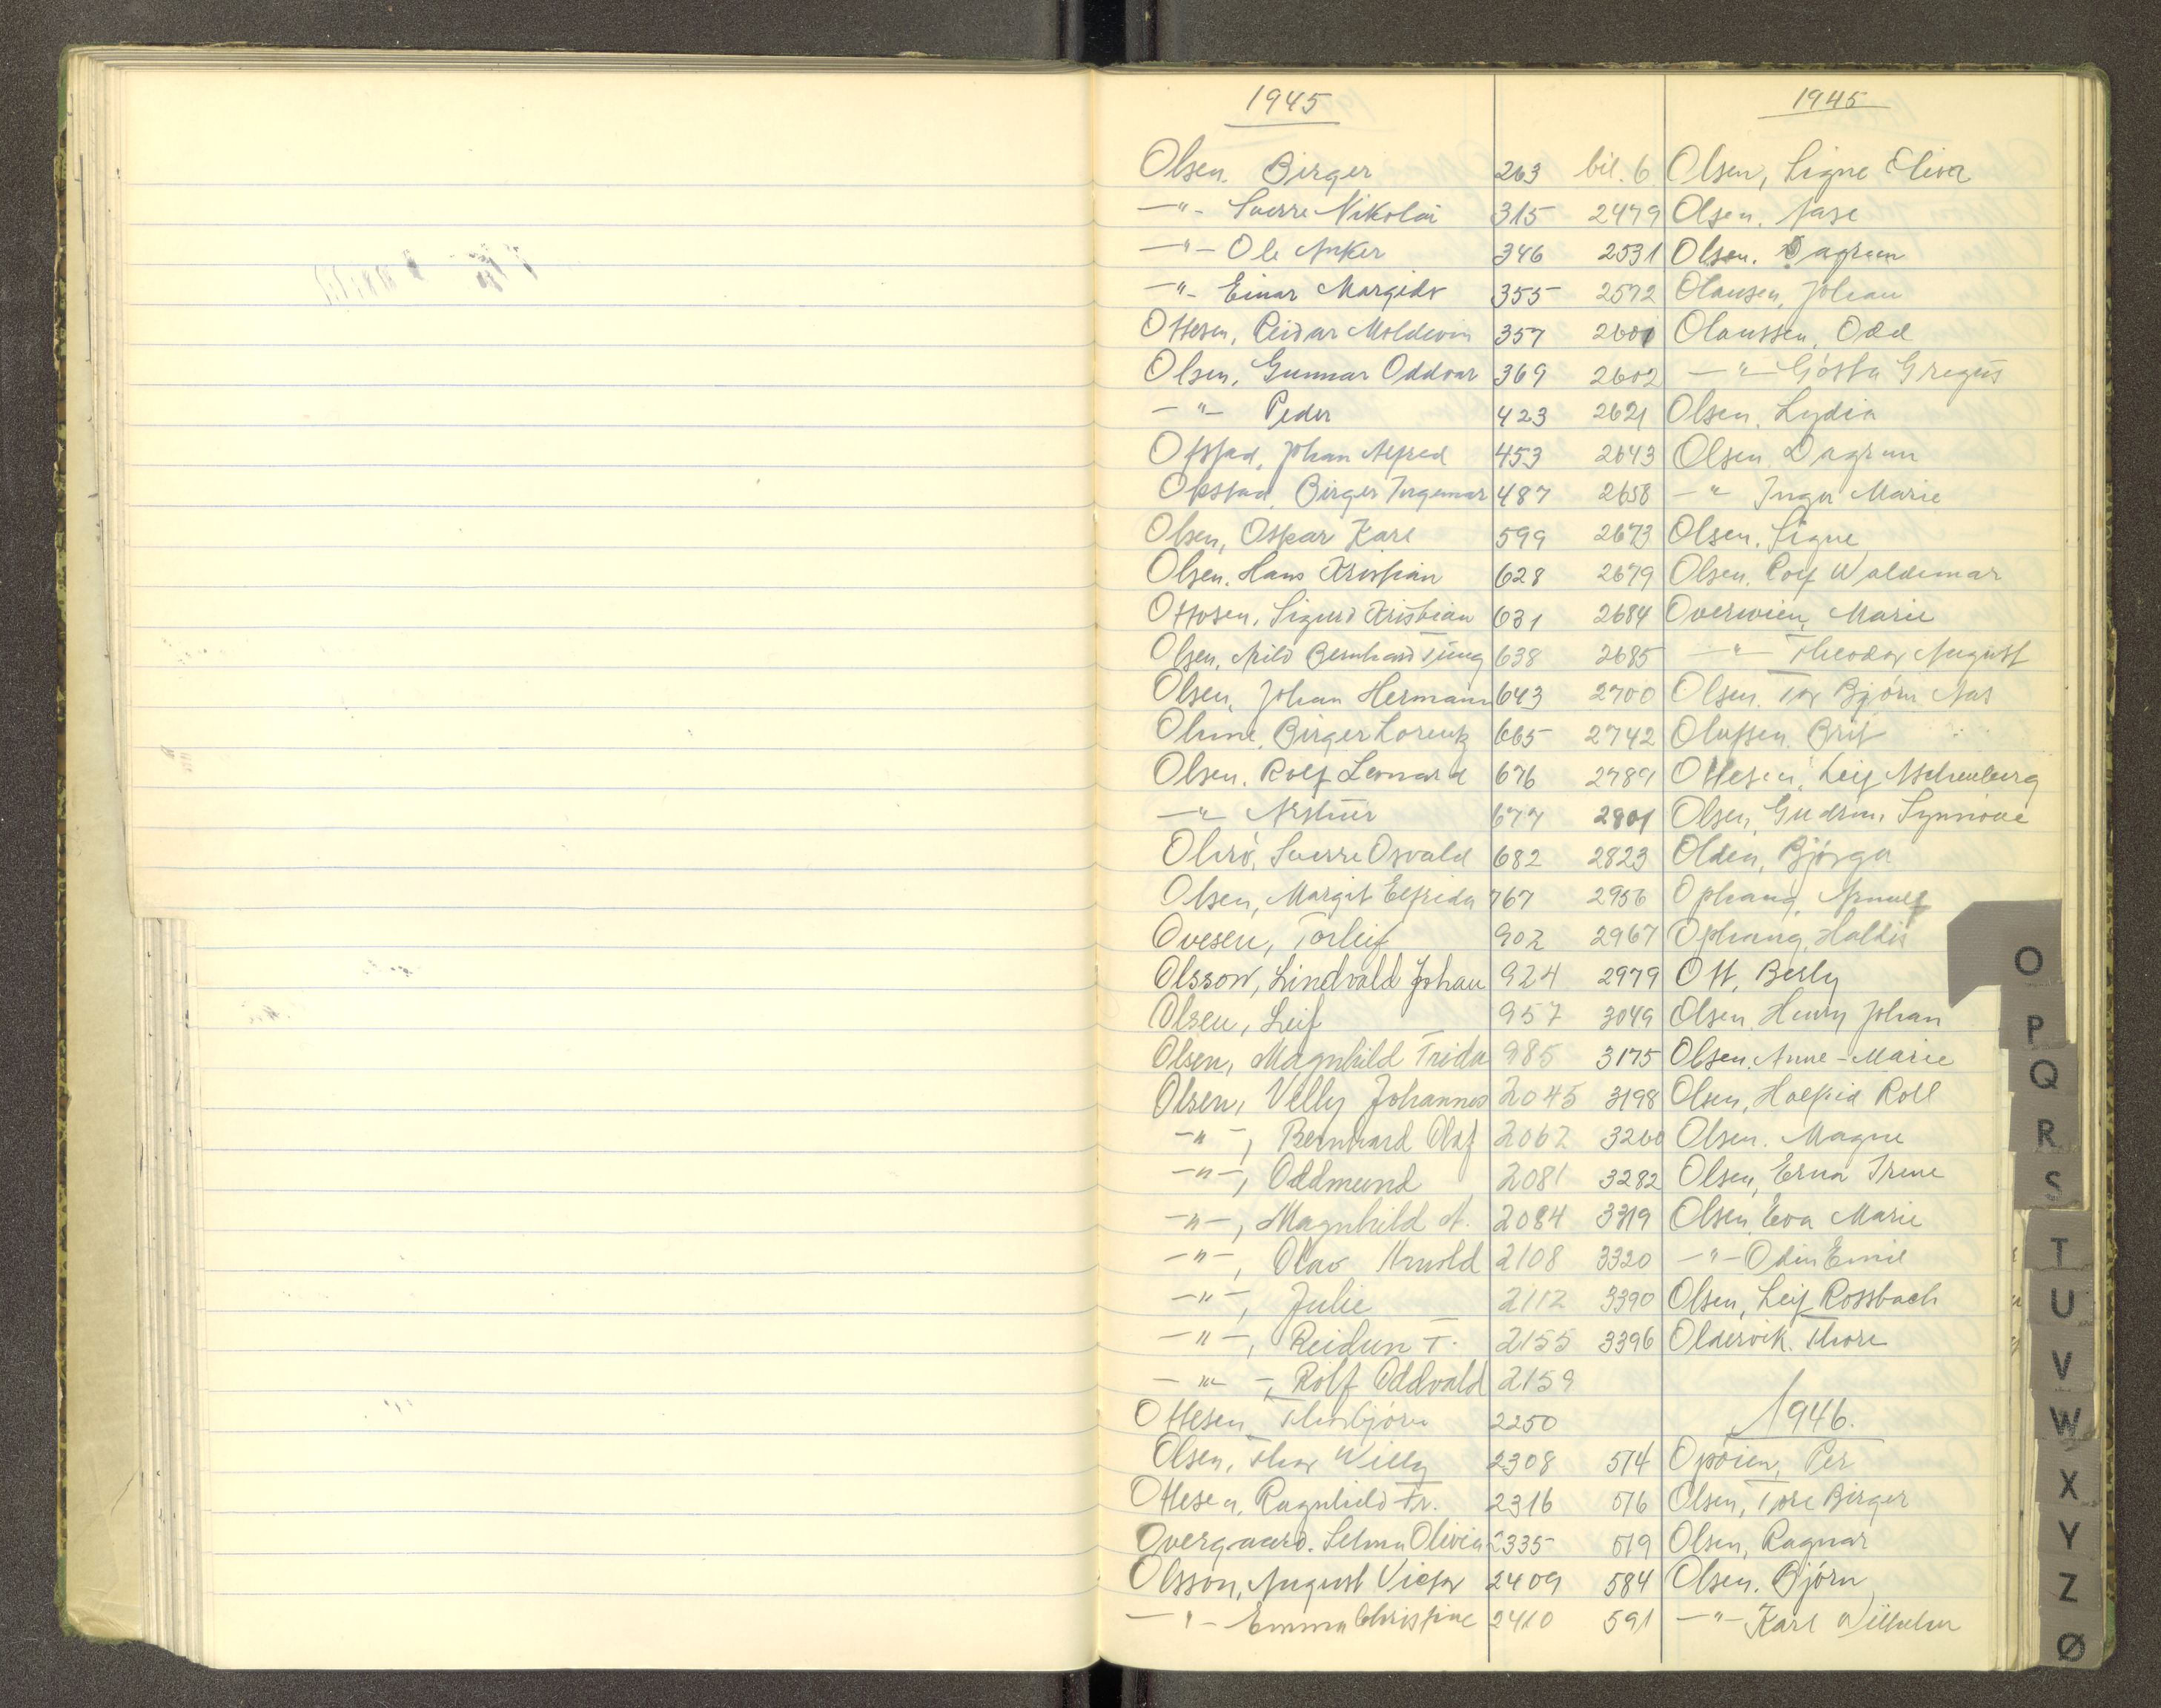 1945
Olsen. Birger 263
—"- Sverre Nikolai 315
—"— Ole Anker 346
—"- Einar Margido 355
Ottesen, Reidar Moldevin 357
Olsen, Gunnar Oddvar 369
—"— Peder 423
Ofstad, Johan Alfred 453
Opstad, Birger Ingemar 487
Olsen, Oskar Karl 599
Olsen. Hans Kristian 628
Ottosen, Sigurd Kristian 631
Olsen, Arild Bernhard 638
Olsen, Johan Hermann 643
Olsine, Birger Lorentz 665
Olsen. Rolf Leonard 676
—"— Arthur 677
Olsrö, Sverre Osvald 682
Olsen, Margit Elfrida 767
Ovesen, Torleif 902
Olsson, Lindvald Johan 924
Olsen, Leif 957
Olsen, Magnhild Frida 985
Olsen, Villy Johannes 2045
—"—, Bernhard Olaf 2062
—"—, Oddmund 2081
—"—, Magnhild A. 2084
—"—, Olav Arnold 2108
—"—, Julie 2112
—"—, Reidun T. 2155
—"—, Rolf Oddvald 2159
Ottesen, Thorbjörn 2250
Olsen, Thor Willy 2308
Ottesen, Ragnhild Fr. 2316
Overgaard. Selma Olivia 2335
Olsson, August Victor 2409
—"— Emma Christine 2410
1945
bil. 6 Olsen, Signe Elivra
2479 Olsen. Aase
2531 Olsen. Dagrun
2572 Olausen, Johan
2601 Olaussen, Odd
2602 —"— Gösta Gregus
2621 Olsen, Lydia
2643 Olsen. Dagrun
2658 —"— Inga Marie
2673 Olsen. Signe
2679 Olsen. Rolf Waldemar
2684 Overwien, Marie
2685 —"— Theodor August
2700 Olsen. Tor Björn Aas
2742 Olufsen. Brit
2789 Ottesen, Leif Aschenberg
2801 Olsen, Gudrun Synnöve
2823 Olden, Björga
2956 Ophaug, Arnulf
2967 Ophaug, Haldis
2979 Ott, Berly
3049 Olsen, Henry Johan
3175 Olsen. Anne-Marie
3198 Olsen, Halfrid Roll
3260 Olsen. Magne
3282 Olsen, Erna Irene
3319 Olsen, Eva Marie
3320 —"— Odin Emil
3390 Olsen, Leif Rossbach
3396 Oldervik. Thore
1946.
514 Opöien, Per
516 Olsen, Tore Birger
519 Olsen, Ragnar
584 Olsen. Björn
591 —"— Karl Wilhelm
O
P
Q
R
S
T
U
V
W
X
Y
Z
Ø